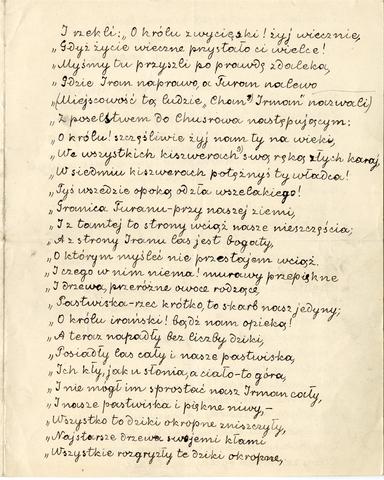 I rzekli: „O królu zwycięski! żyj wiecznie,
„Gdyż życie wieczne przystało ci wielce!
„Myśmy tu przyszli po prawdę zdaleka,
„Gdzie Iran naprawo, a Turan nalewo
„(Miejscowość tą ludzie „Cham Irman” nazwali)
„Z poselstwem do Chusrowa następującym:
„O królu! szczęśliwie żyj nam ty na wieki,
„We wszystkich kiszwerach swą ręką złych karaj,
„W siedmiu kiszwerach potężnyś ty władca!
„Tyś wszędzie opoką od zła wszelakiego!
„Granica Turanu - przy naszej ziemi,
„I z tamtej to strony wciąż nasze nieszczęścia;
„A z strony Iranu las jest bogaty,
„O którym myśleć nie przestajem wciąż.
„I czego w nim niema! murawy przepiękne
„I drzewa, przeróżne owoce rodzące
„Pastwiska - rzec krótko, to skarb nasz jedyny;
„O królu irański! bądź nam opieką!
„A teraz napadły bez liczby dziki,
„Posiadły las cały i nasze pastwiska,
„Ich kły, jak u słonia, a ciało - to góra,
„I nie mógł im sprostać nasz Irman cały,
„I nasze pastwiska i piękne niwy, -
„Wszystko to dziki okropne zniszczyły,
„Najstarsze drzewa swojemi kłami
„Wszystkie rozgryzły te dziki okropne,